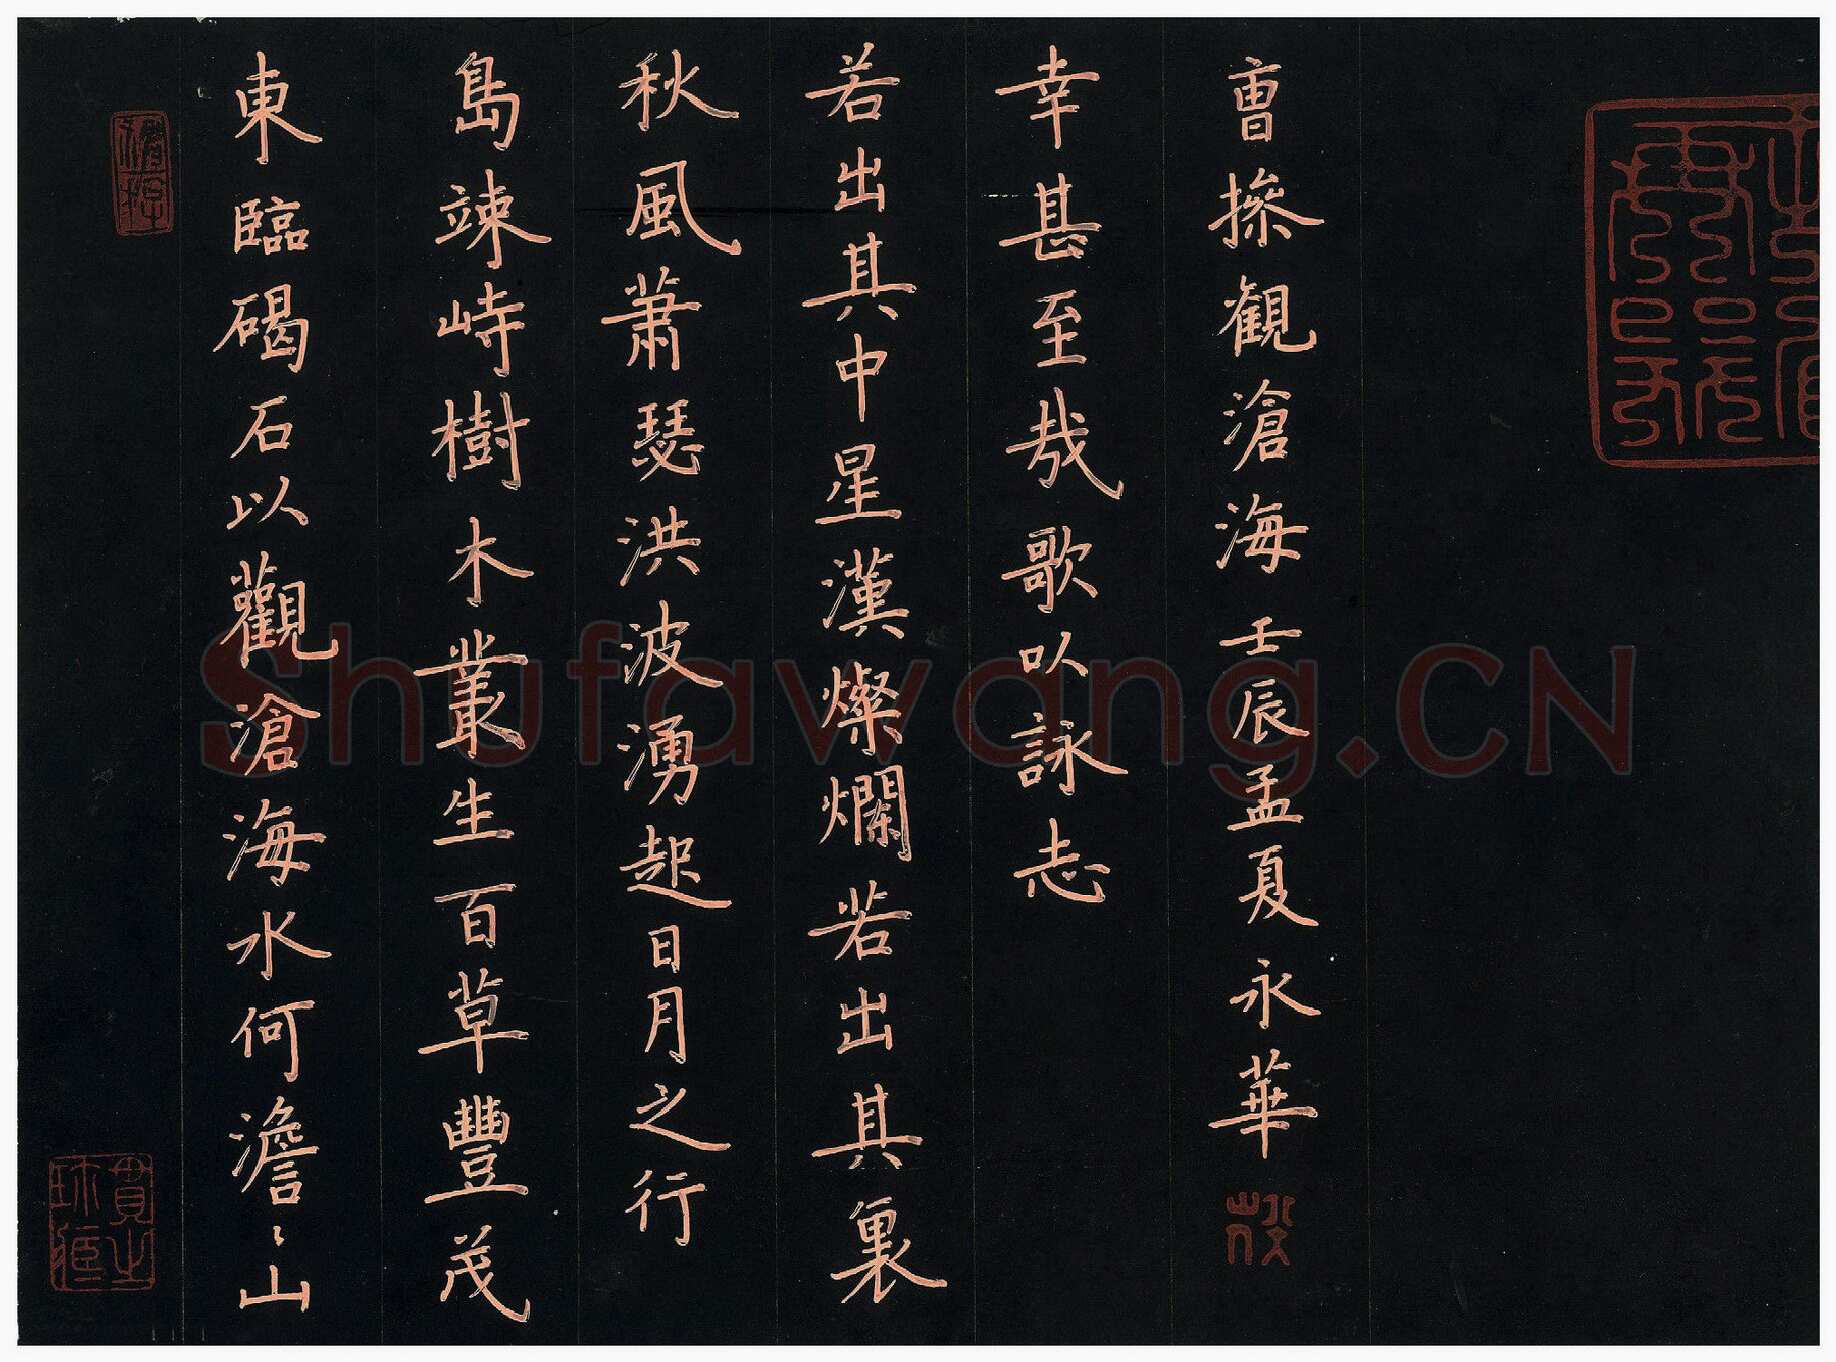 東臨碣石以觀滄海水何澹〻山
島竦峙樹木叢生百草豐茂
秋風蕭瑟洪波湧起日月之行
若出其中星漢燦爛若出其裏
幸甚至哉歌以詠志
曹操観滄海壬辰孟夏永華
Shufawang.CN